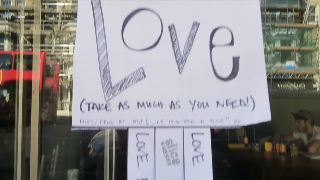 Love
(TAKE AS MUCH AS YOU NEED!)
LOVE
slice
LOVE